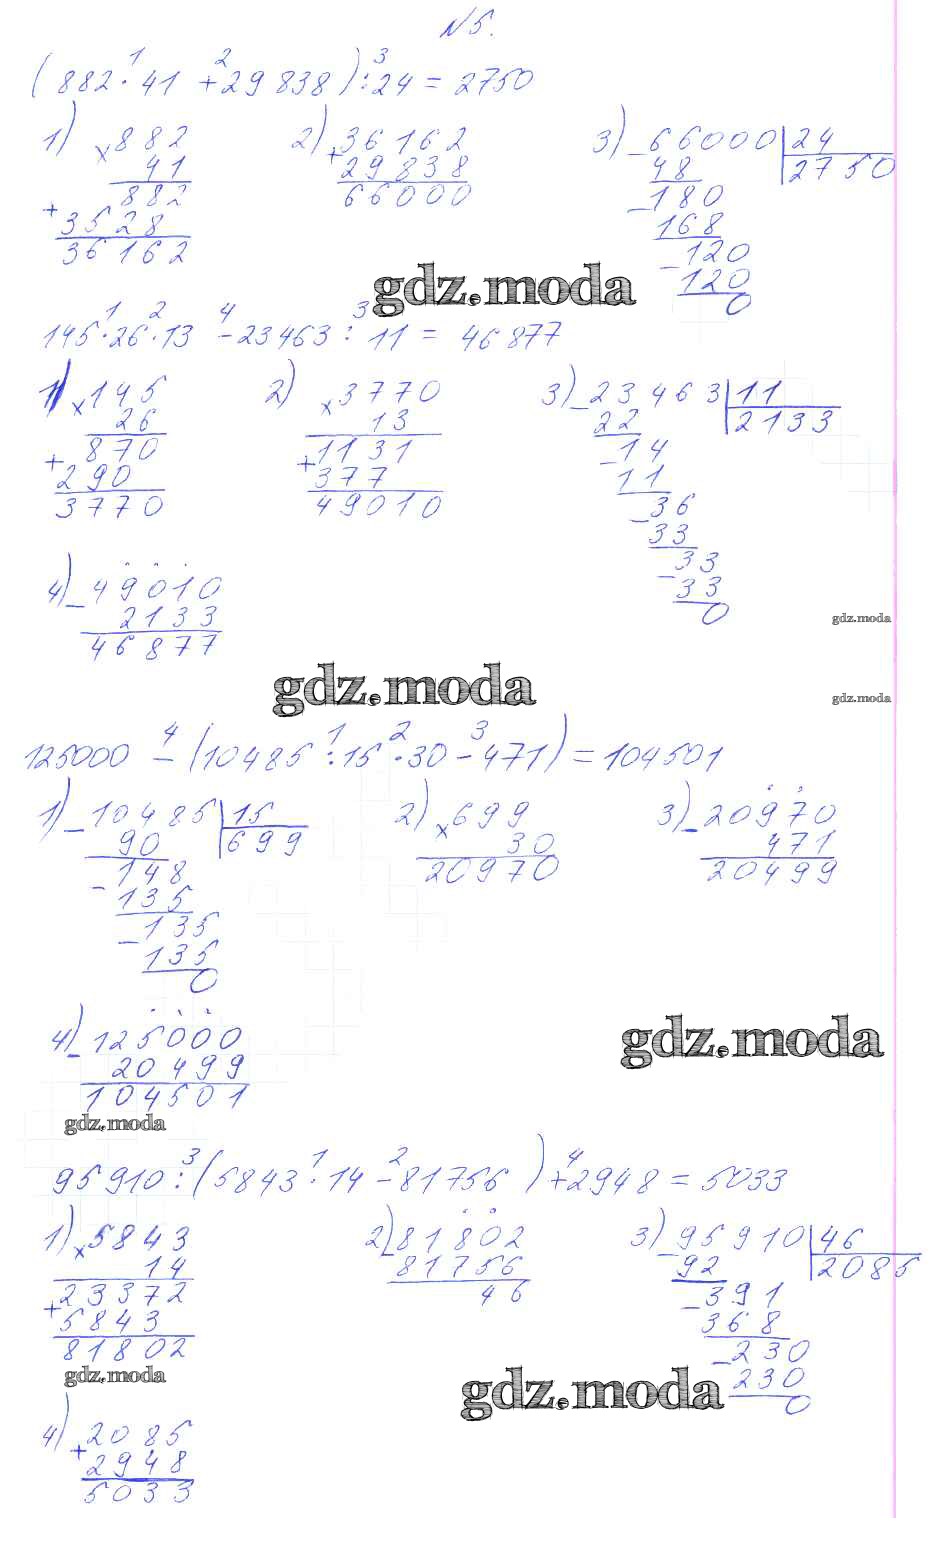 №5.
(882 · 41 + 29 838) : 24 = 2750
1 2 3
1) × 882
41
882
+ 3528
36162
2) + 36162
29838
66000
3) - 66000 | 24
48 | 2750
- 180
168
- 120
120
0
gdz.moda
145 · 26 · 13 - 23463 : 11 = 46877
1 2 4 3
1) × 145
26
870
+ 290
3770
2) × 3770
13
1131
+ 377
49010
3) - 23463 | 11
22 | 2133
- 14
11
- 36
33
- 33
33
0
4) - 49010
2133
46877
gdz.moda
gdz.moda
gdz.moda
125000 - (10485 : 15 · 30 - 471) = 104501
4 1 2 3
1) - 10485 | 15
90 | 699
- 148
135
- 135
135
0
2) × 699
30
20970
3) - 20970
471
20499
4) - 125000
20499
104501
gdz.moda
gdz.moda
95910 : (5843 · 14 - 81756) + 2948 = 5033
3 1 2 4
1) × 5843
14
23372
+ 5843
81802
2) - 81802
81756
46
3) - 95910 | 46
92 | 2085
- 391
368
- 230
230
0
gdz.moda
gdz.moda
4) + 2085
2948
5033